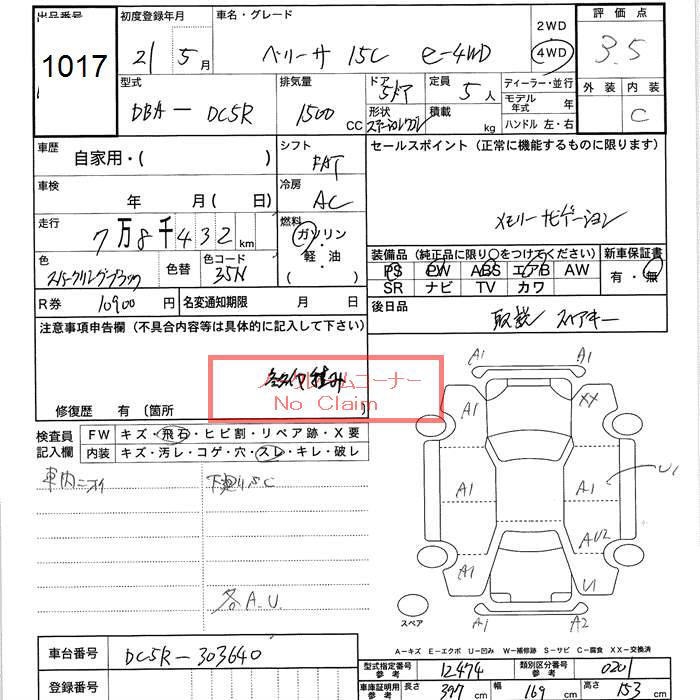 出品番号 初度登録年月 車名・グレード 2WD 評価点
1017 21 5月 ベリーサ 15C e-4WD 4WD 3.5
型式 排気量 ドア 5ドア 定員 5人 ディーラー・並行 外装 内装
DBA - DC5R 1500 CC 形状 ステーションワゴン 積載 kg モデル年式 年 C
ハンドル 左・右
車歴 自家用・( ) シフト FAT セールスポイント (正常に機能するものに限ります)
車検 年 月 ( 日) 冷房 AC
メモリーナビゲーション
走行 7万8千432km 燃料 ガソリン・軽油・( )
装備品 (純正品に限り○をつけてください) 新車保証書
色 スパークリングブラック 色替 色コード 35N PS PW ABS エアB AW 有・無
SR ナビ TV カワ
R券 10900円 名変通知期限 月 日 後日品 取説 スペアキー
注意事項申告欄 (不具合内容等は具体的に記入して下さい)
ノークレームコーナー
No Claim
修復歴 有 〔箇所 〕
検査員記入欄 FW キズ・飛石・ヒビ割・リペア跡・X要
内装 キズ・汚レ・コゲ・穴・スレ・キレ・破レ
車内ニオイ 下廻りSC
各A.U.
A1 A1
A1 XX
A1 A1 U1
AU2
A1 U1
A1 A2
スペア
A-キズ E-エクボ U-凹み W-補修跡 S-サビ C-腐食 XX-交換済
車台番号 DC5R-303640
型式指定番号 参考 12474 類別区分番号 参考 0201
登録番号 車庫証明用 参考 長さ 397cm 幅 169cm 高さ 153cm